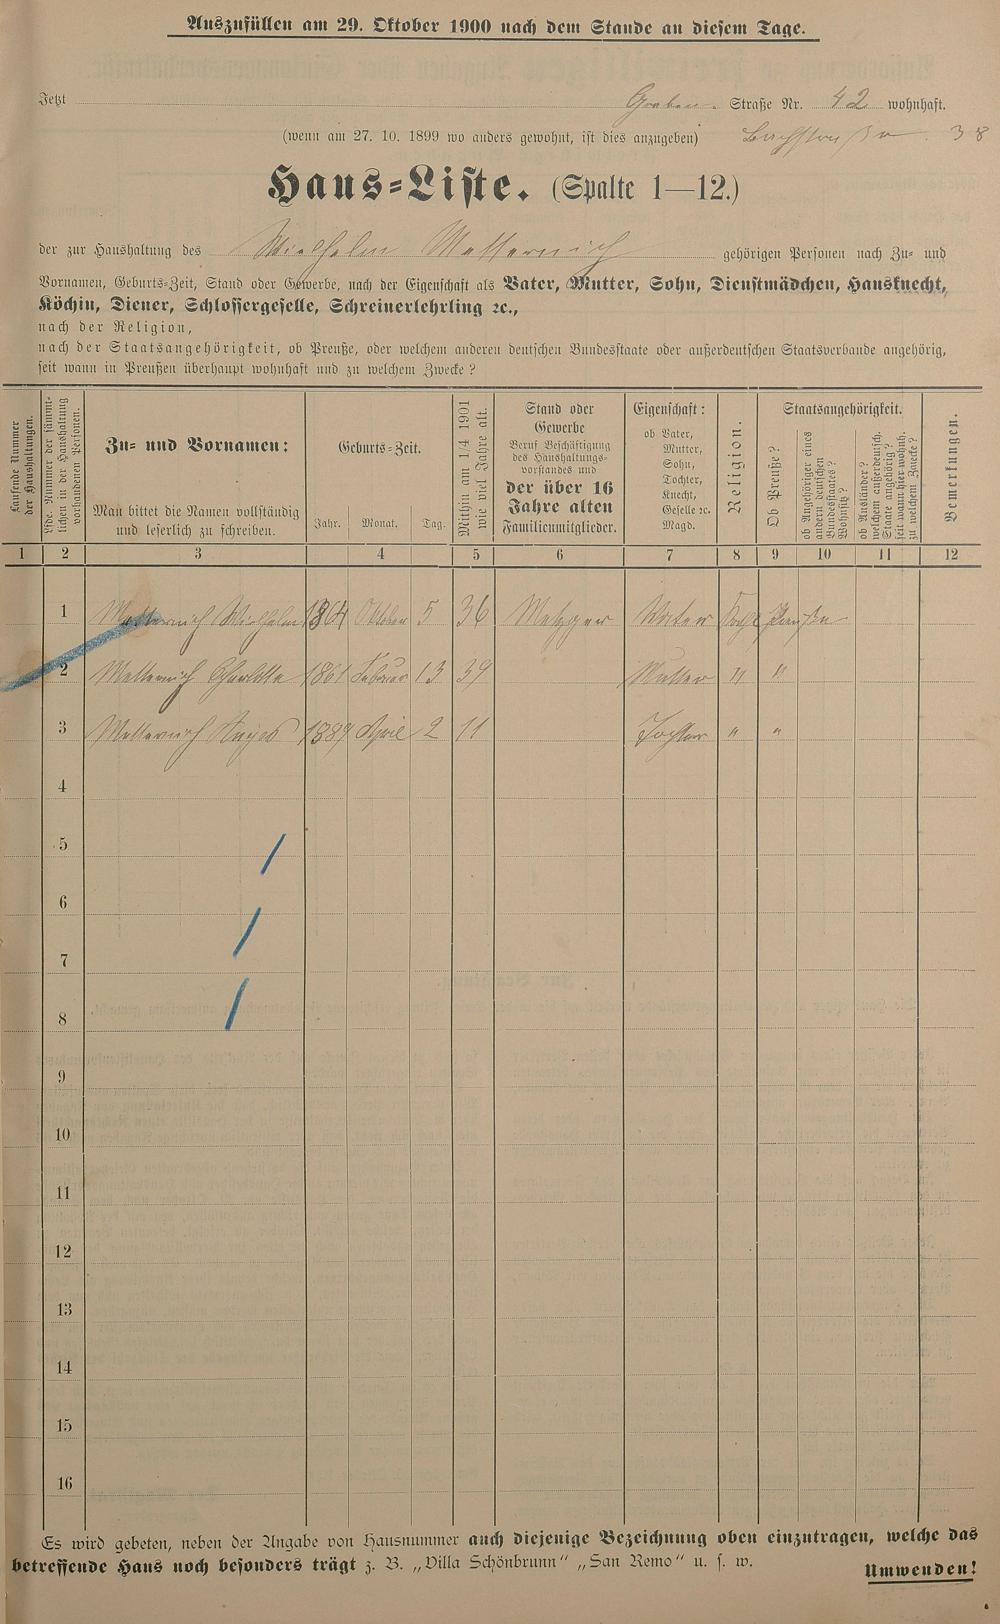 Auszufüllen am 29. Oktober 1900 nach dem Stande an diesem Tage.
Jetzt Graben- Straße Nr. 42 wohnhaft.
(wenn am 27. 10. 1899 wo anders gewohnt, ist dies anzugeben) 38
Haus-Liste. (Spalte 1—12.)
der zur Haushaltung des Wielhelm Metternich gehörigen Personen nach Zu- und
Vornamen, Geburts-Zeit, Stand oder Gewerbe, nach der Eigenschaft als Vater, Mutter, Sohn, Dienstmädchen, Hausknecht,
Köchin, Diener, Schlossergeselle, Schreinerlehrling ꝛc.,
nach der Religion,
nach der Staatsangehörigkeit, ob Preuße, oder welchem anderen deutschen Bundesstaate oder außerdeutschen Staatsverbande angehörig,
seit wann in Preußen überhaupt wohnhaft und zu welchem Zwecke?
Laufende Nummer der Haushaltungen.
Lfde. Nummer der sämmtlichen in der Haushaltung vorhandenen Personen.
Zu- und Vornamen:
Man bittet die Namen vollständig
und leserlich zu schreiben.
Geburts-Zeit.
Jahr. Monat. Tag.
Mithin am 1/4 1901 wie viel Jahre alt.
Stand oder
Gewerbe
Beruf Beschäftigung
des Haushaltungs-
vorstandes und
der über 16
Jahre alten
Familienmitglieder.
Eigenschaft:
ob Vater,
Mutter,
Sohn,
Tochter,
Knecht,
Geselle ꝛc.
Magd.
Religion.
Staatsangehörigkeit.
Ob Preuße?
ob Angehöriger eines andern deutschen Bundesstaates? Wohnsitz?
ob Ausländer? welchem außerdeutsch. Staate angehörig? seit wann hier wohnh. zu welchem Zwecke?
Bemerkungen.
1 2 3 4 5 6 7 8 9 10 11 12
1 Metternich Wielhelm 1864 Oktober 5 36 Metzger Vater Kath Preußen
2 Metternich Charlotte 1861 Februar 13 39 Mutter " "
3 Metternich Agnes 1889 April 2 11 Tochter " "
4
5
6
7
8
9
10
11
12
13
14
15
16
Es wird gebeten, neben der Angabe von Hausnummer auch diejenige Bezeichnung oben einzutragen, welche das
betreffende Haus noch besonders trägt z. B. „Villa Schönbrunn“ „San Remo“ u. s. w.
Umwenden!